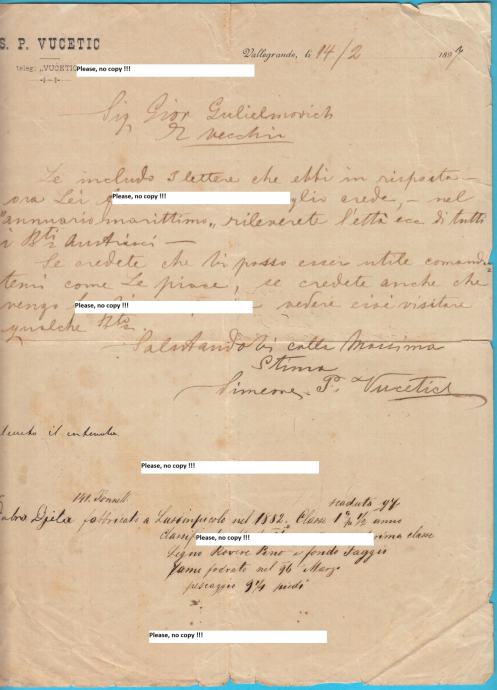 S. P. VUCETIC
teleg: „VUCETIC
Please, no copy !!!
Vallegrande, li 14/2 1897
Sig Gior Gulielmovich
E Vecchio
Le includo 3 lettere che ebbi in risposta –
ora Lei
Please, no copy !!!
glio crede, – nel
"annuario marittimo„ rileverete l'età ecc di tutti
i Bti Austriaci –
Se credete che Vi posso esser utile comanda-
temi come Le piace, se credete anche che
vengo
Please, no copy !!!
vedere cioè visitare
qualche Bto
Salutandovi colla Massima
Stima
Simeone P. Vucetich
Please, no copy !!!
141 Tonnell
scaduta 97
fabbricato a Lussinpiccolo nel 1882. Classe 1 anno
Please, no copy !!!
prima classe
Legno Rovere Pino e fondo Faggio
Rame fodrato nel 96 Marzo
pescaggio 9 3/4 piedi
Please, no copy !!!